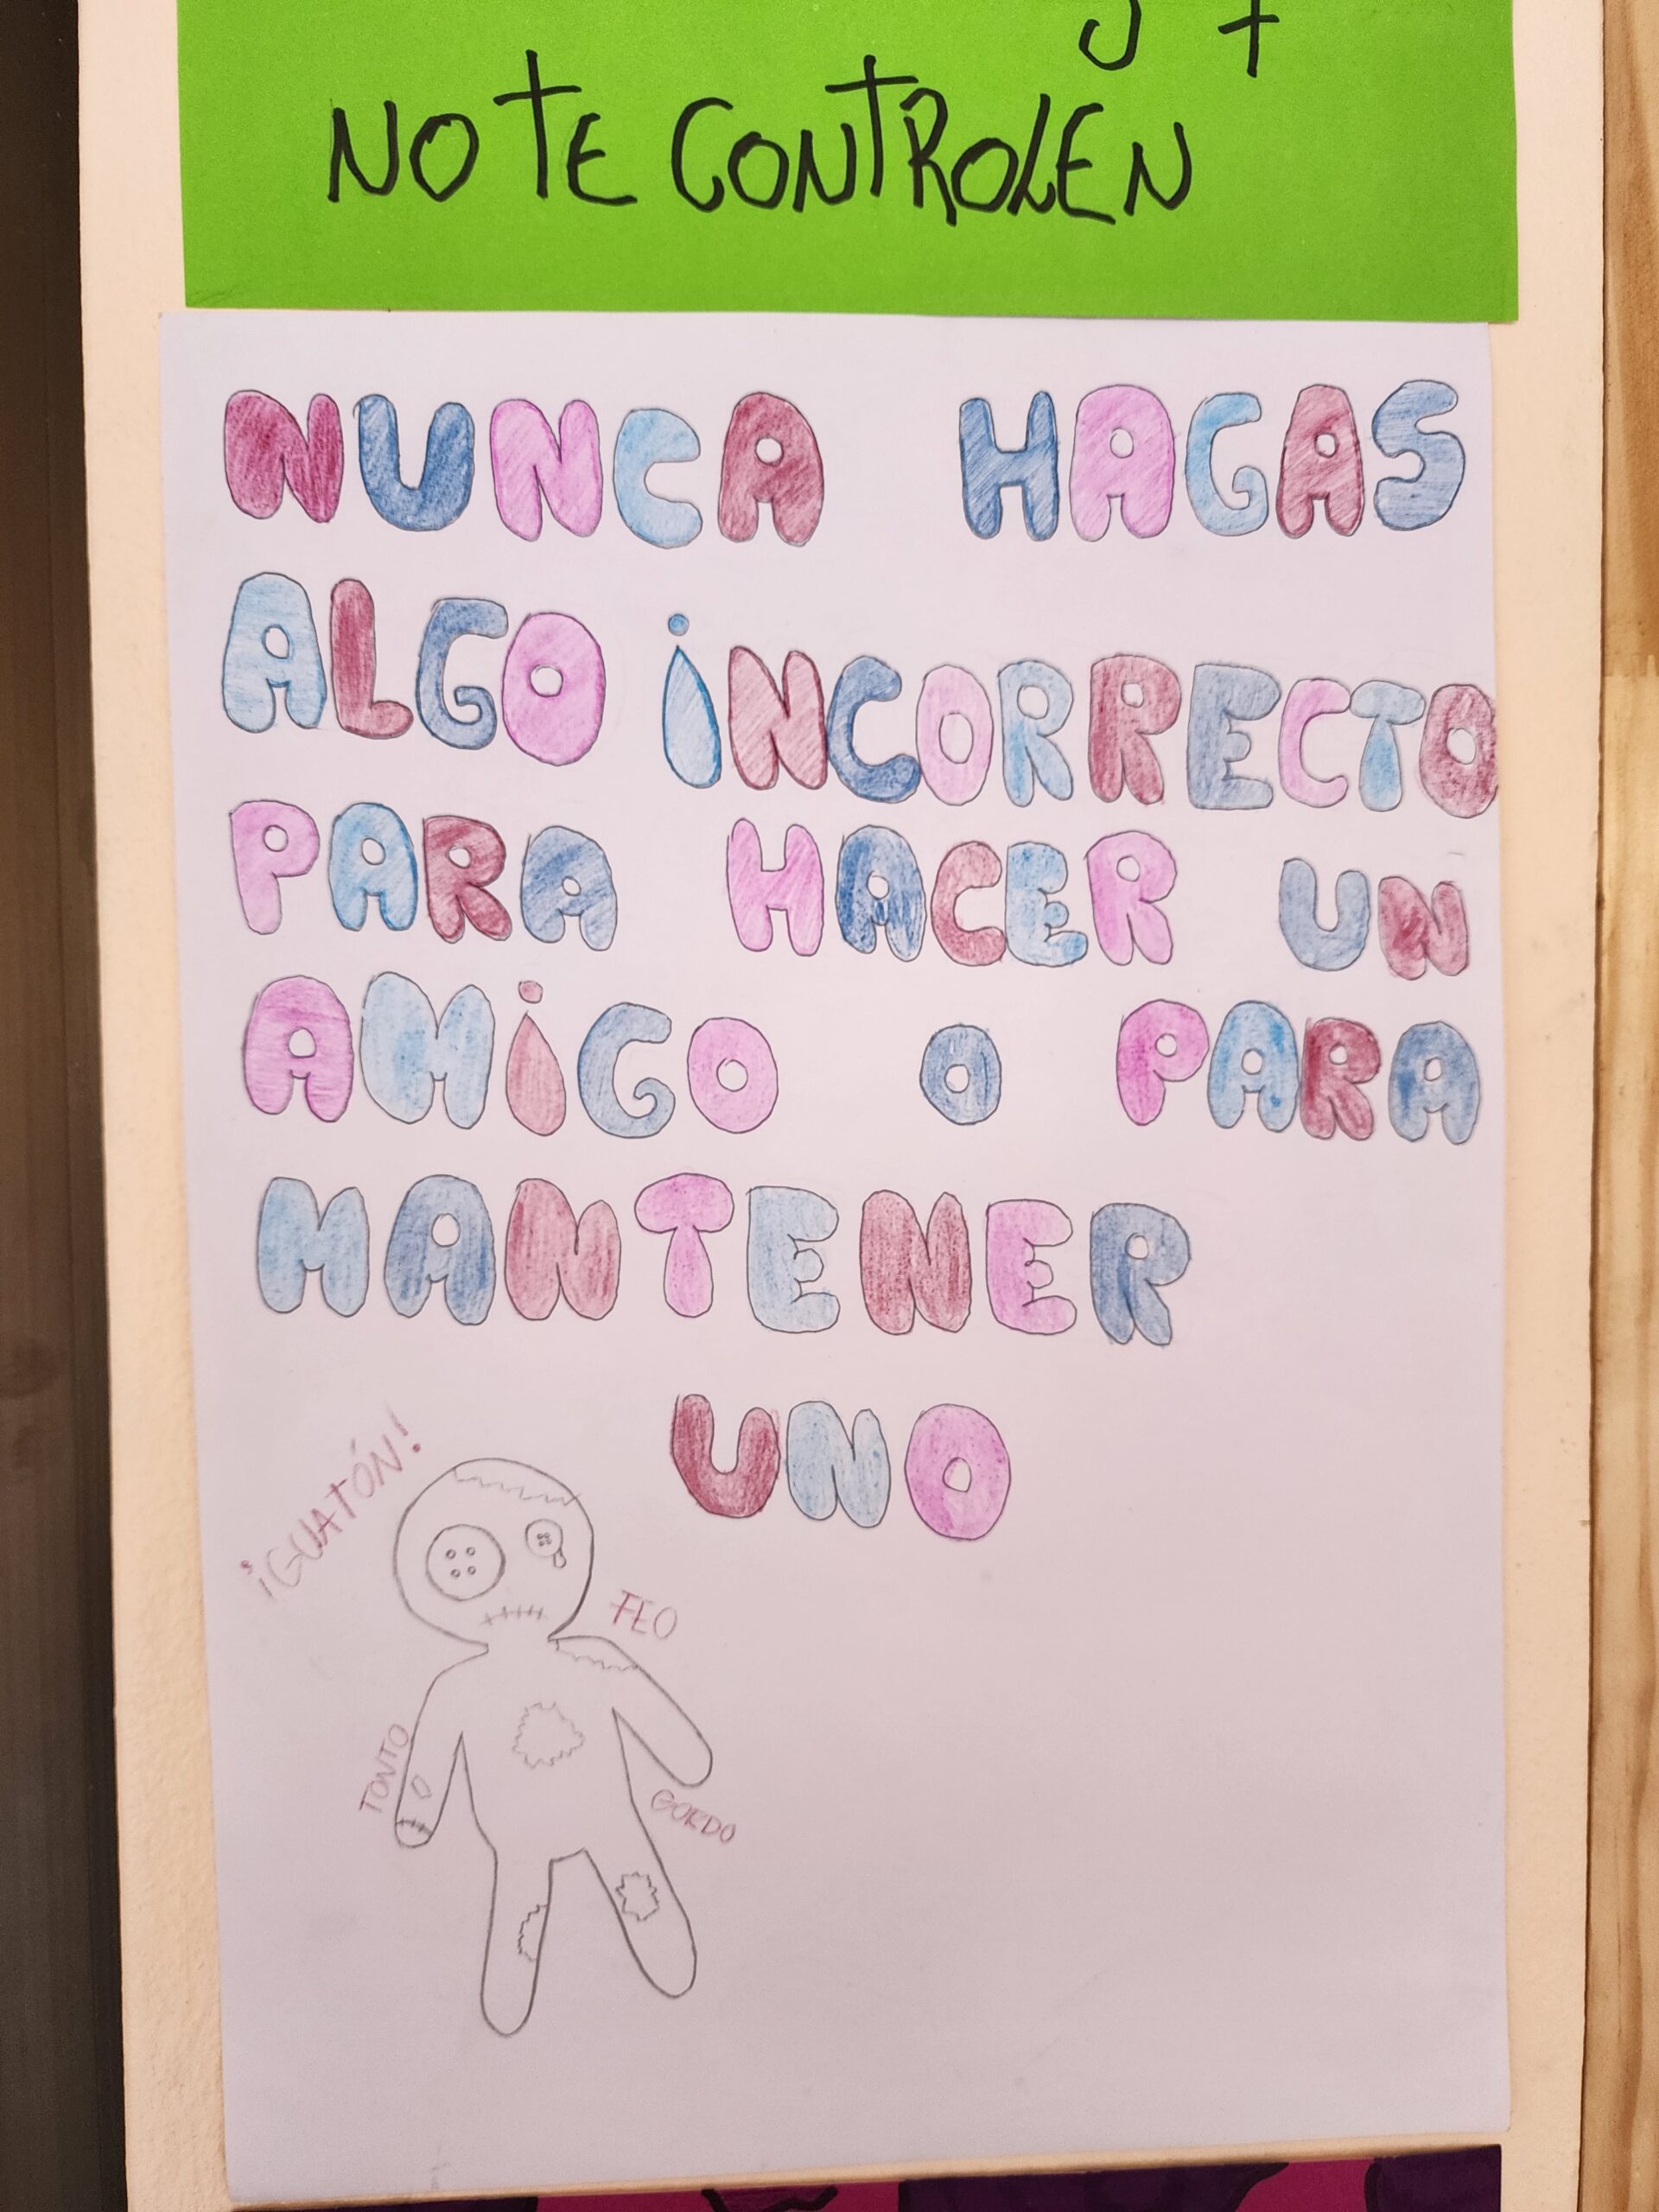 NO TE CONTROLEN
NUNCA HAGAS
ALGO iNCORRECTO
PARA HACER UN
AMiGO O PARA
MANTENER
UNO
¡GUATÓN!
FEO
TONTO
GORDO